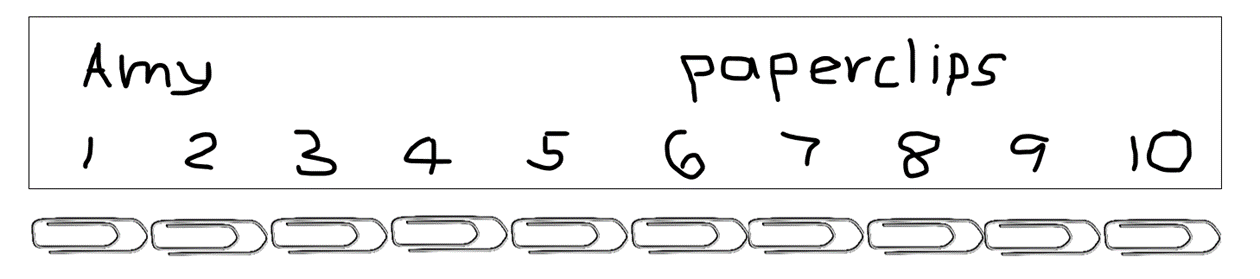 Amy paperclips
1 2 3 4 5 6 7 8 9 10